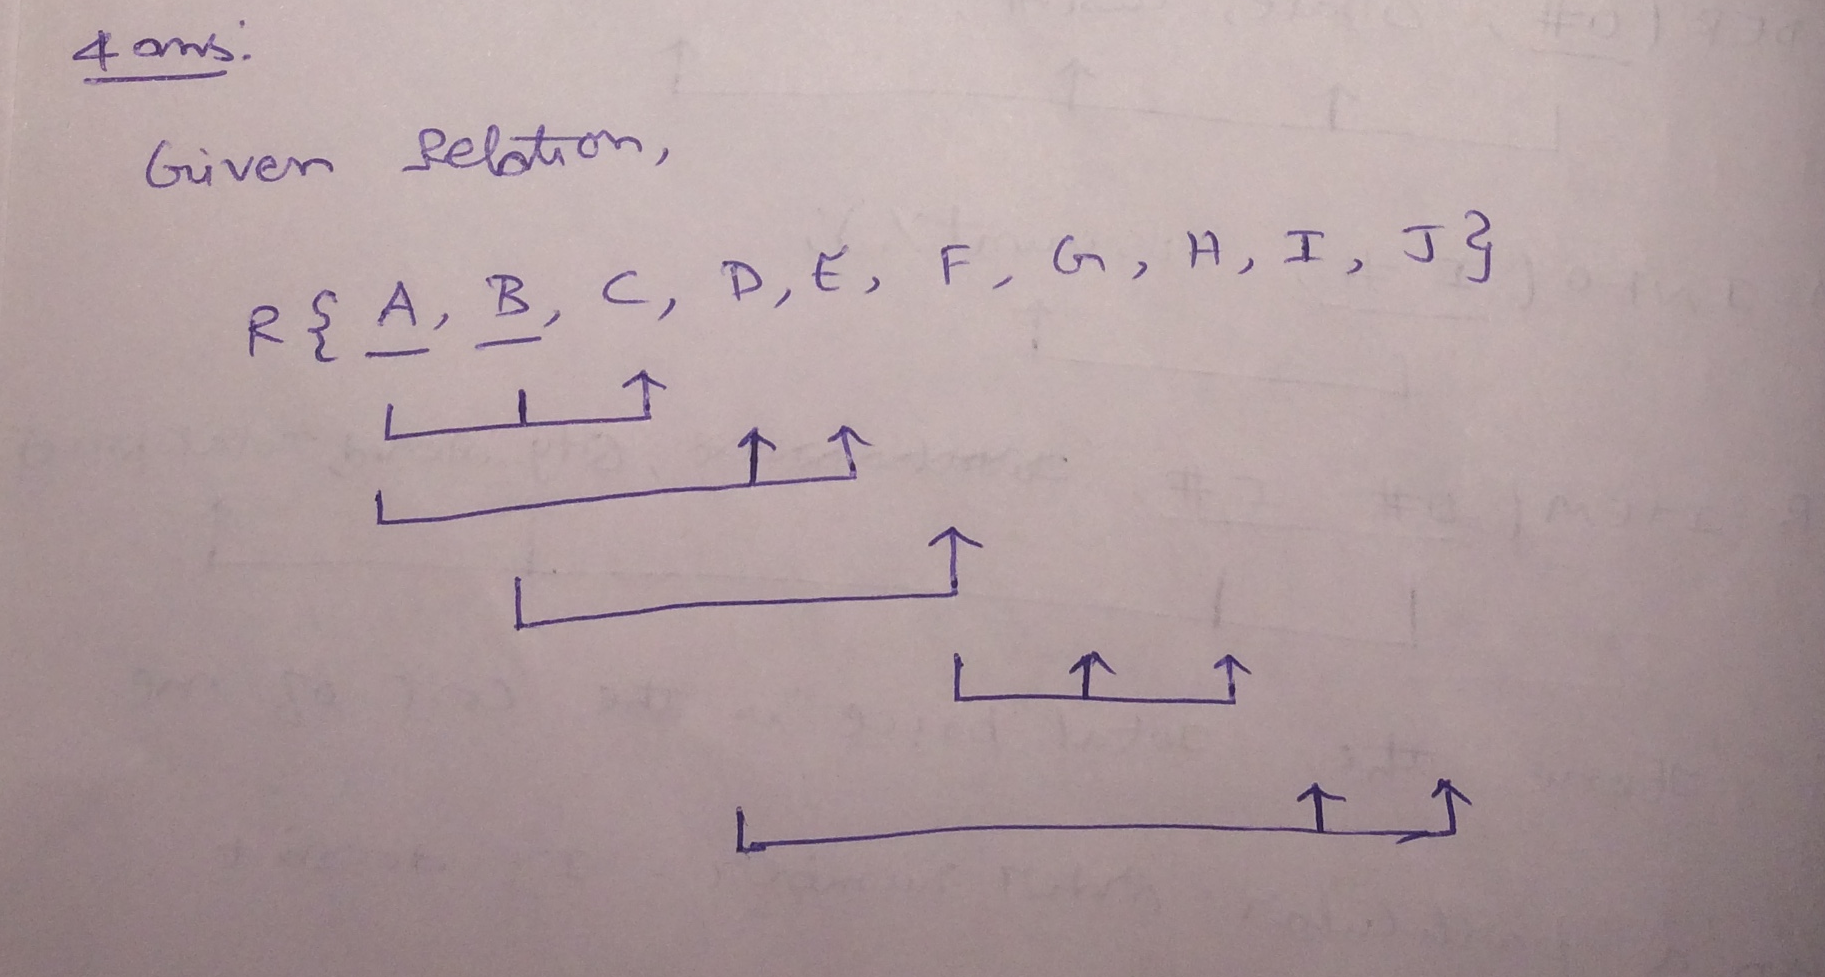 4 ans:
Given relation,
R{ A, B, C, D, E, F, G, H, I, J}